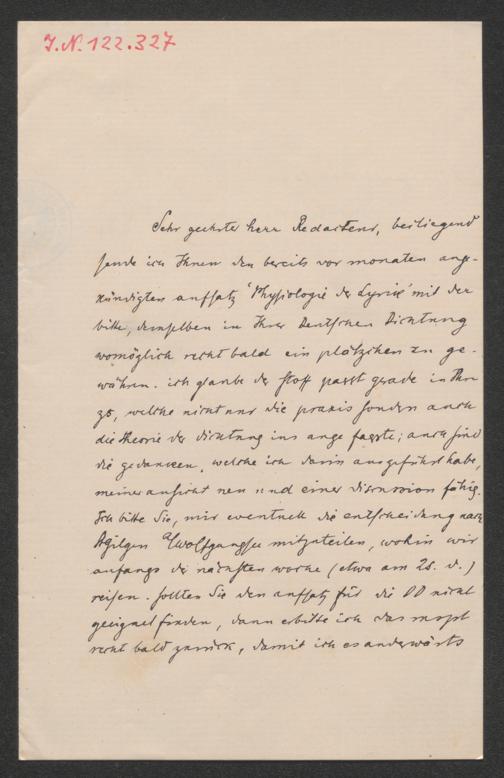 J.N. 122.327
Sehr geehrter herr Redacteur, beiliegend
sende ich Ihnen den bereits vor monaten ange-
kündigten aufsatz 'Physiologie der Lyrik' mit der
bitte, demselben in Ihrer Deutschen Dichtung
womöglich recht bald ein plätzchen zu ge-
währen. ich glaube der stoff passt gerade in Ihre
zs, welche nicht nur die praxis sondern auch
die theorie der dichtung ins auge fasste; auch sind
die gedancken, welche ich darin ausgeführt habe,
meiner ansicht neu und einer discussion fähig.
Ich bitte Sie, mir eventuell die entscheidung nach
StGilgen Wolfgangsee mitzuteilen, wohin wir
anfangs der nächsten woche (etwa am 26. d.)
reisen. sollten Sie den aufsatz für die DD nicht
geeignet finden, dann erbitte ich das mspt
recht bald zurück, damit ich es anderwärts